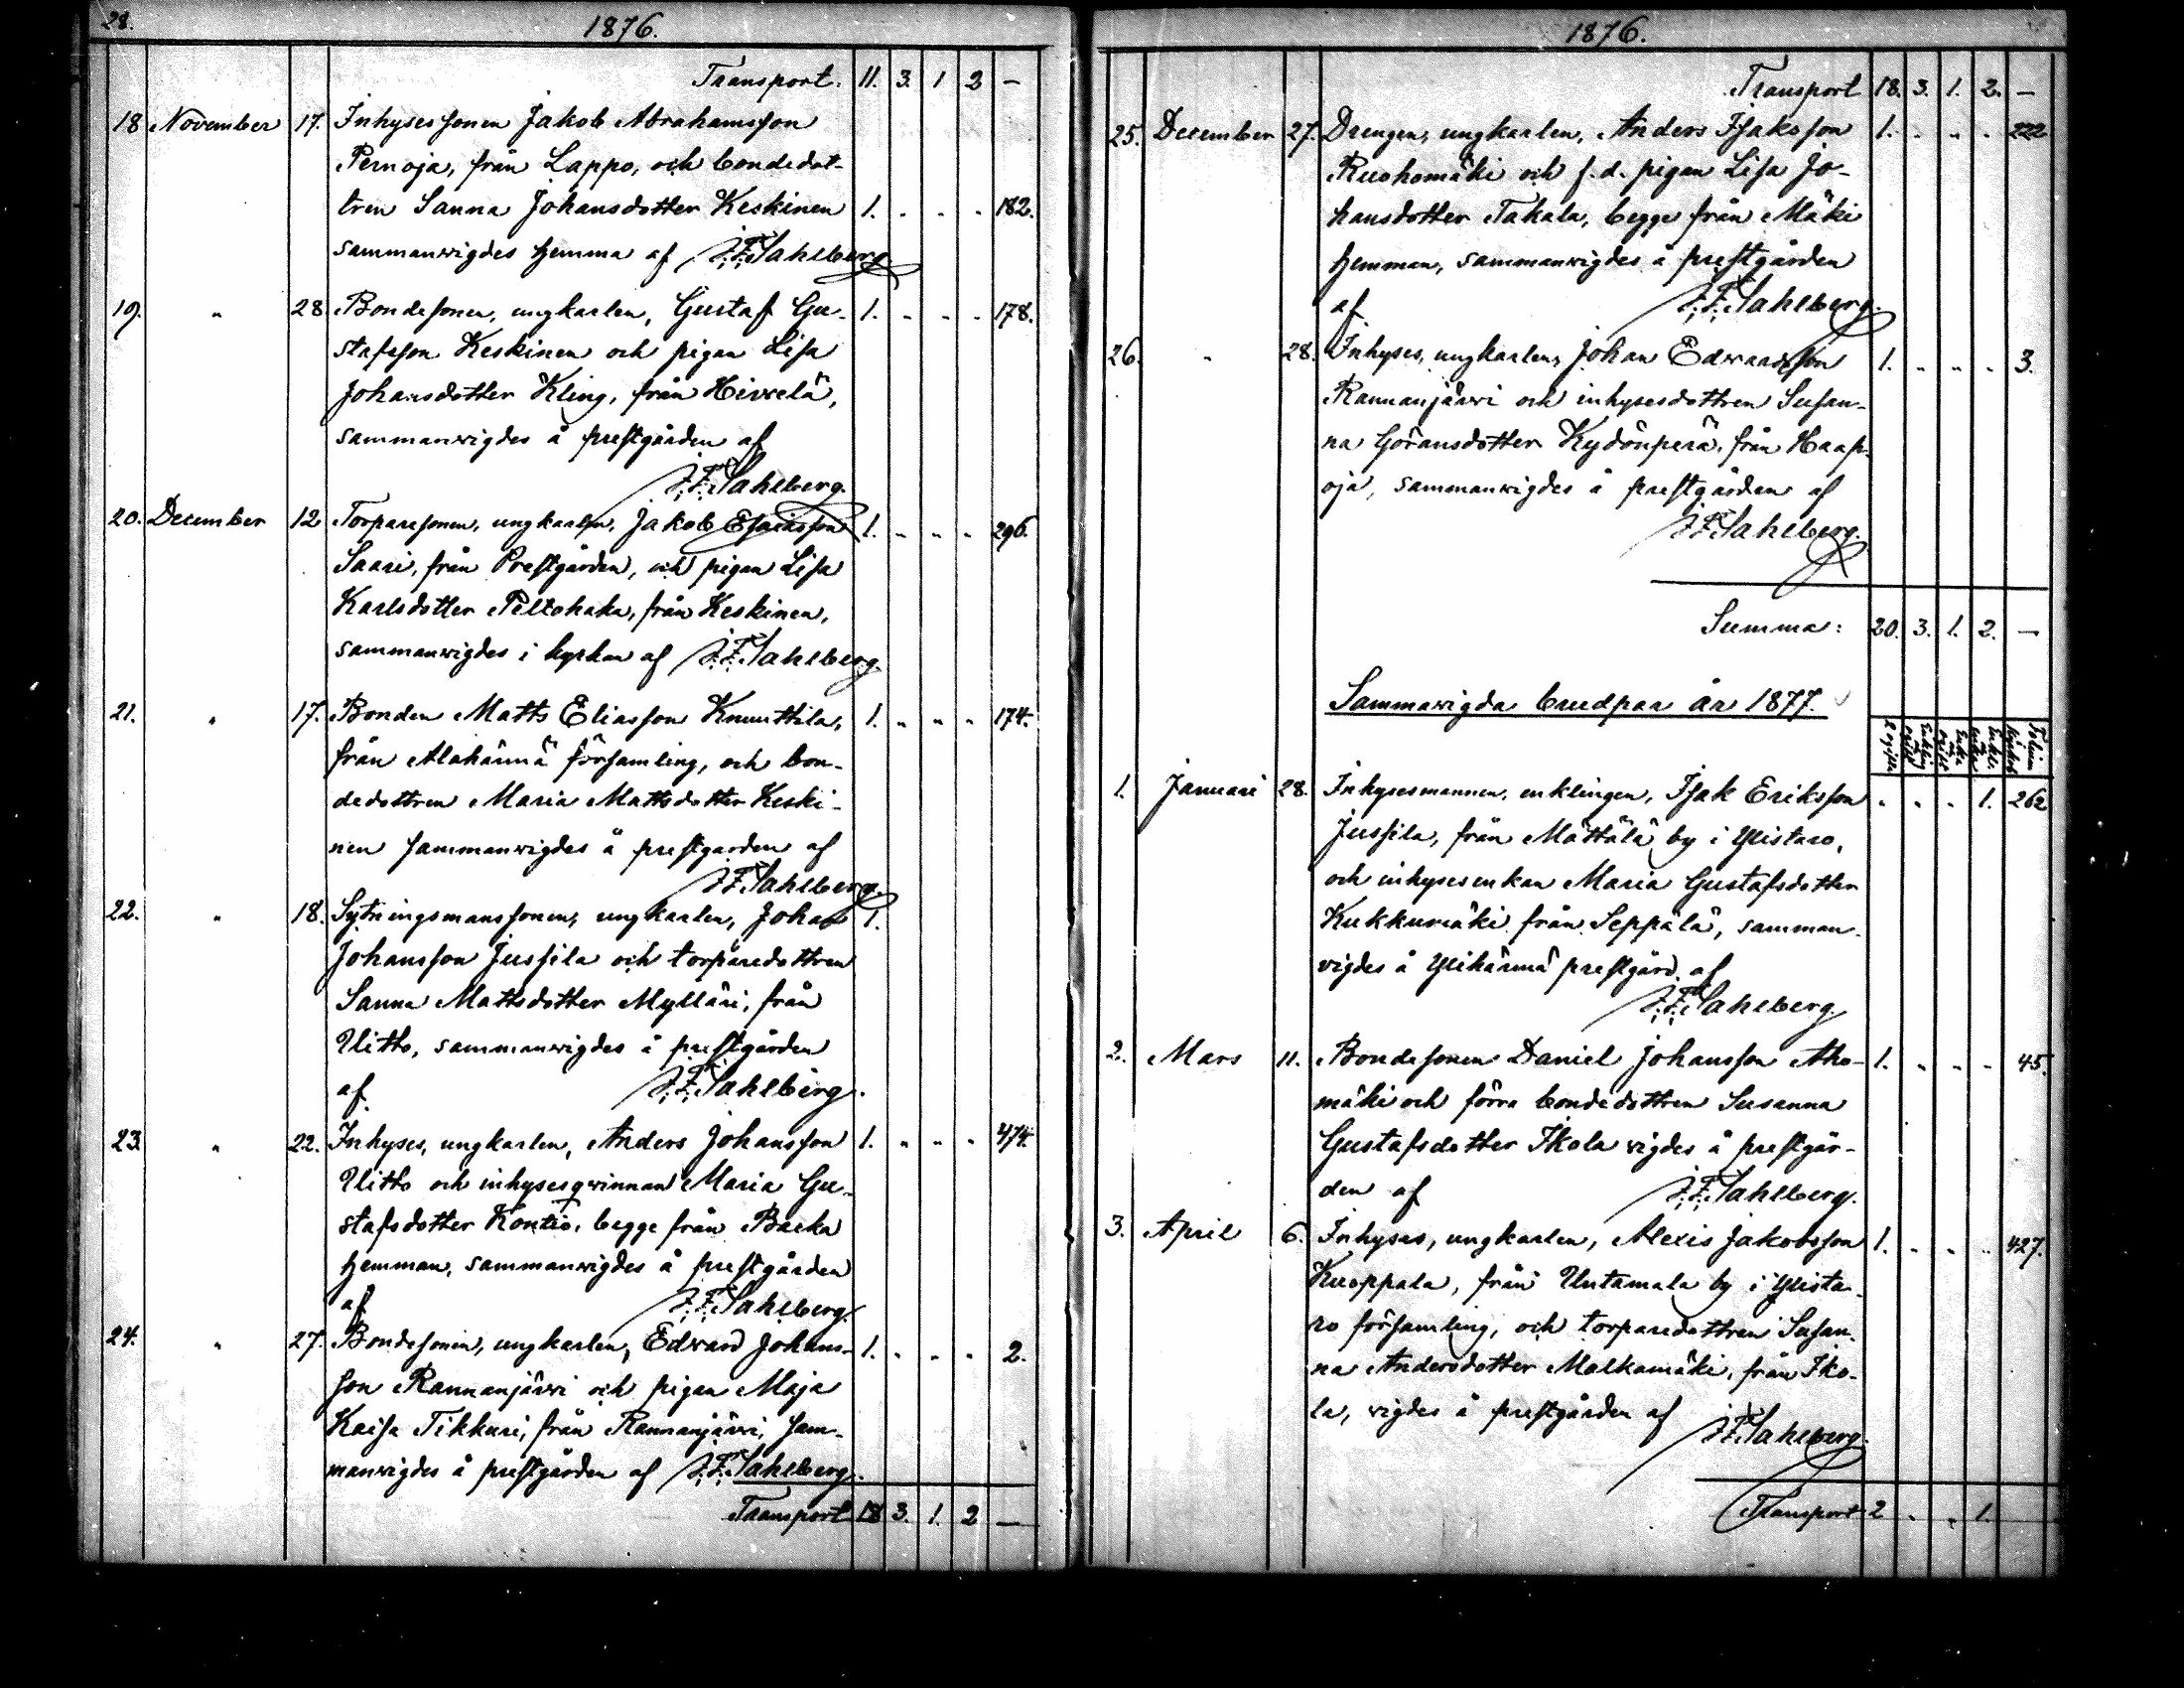 28.
1876.
Transport. 11. 3. 1 2 —
18 November 17. Inhysessonen Jakob Abrahamsson
Pernoja, från Lappo, och bondedot-
tren Sanna Johansdotter Keskinen 1. . . . 182.
sammanvigdes hemma af J. F. Sahlberg
19. " 28 Bondesonen, ungkarlen, Gustaf Gu- 1. . . . 178.
stafsson Keskinen och pigan Lisa
Johansdotter Kling, från Hirvelä,
sammanvigdes å prestgården af
J. F. Sahlberg.
20. December 12 Torparesonen, ungkarlen, Jakob Esaiasson 1. . . . 296.
Saari, från Prestgården, och pigan Lisa
Karlsdotter Peltohaka, från Keskinen,
sammanvigdes i kyrkan af J. F. Sahlberg.
21. " 17. Bonden Matts Eliasson Knuuttila, 1. . . . 174.
från Alahärmä församling, och bon-
dedottren Maria Mattsdotter Keski-
nen sammanvigdes å prestgården af
J. F. Sahlberg.
22. " 18. Sytningsmanssonen, ungkarlen, Johan 1.
Johansson Jussila och torparedottren
Sanna Mattsdotter Mylläri, från
Uitto, sammanvigdes å prestgården
af J. F. Sahlberg.
23. " 22. Inhyses, ungkarlen, Anders Johansson 1. . . . 474.
Uitto och inhysesqvinnan Maria Gu-
stafsdotter Kontio, begge från Backa
hemman, sammanvigdes å prestgården
af J. F. Sahlberg.
24. " 27. Bondesonen, ungkarlen, Edvard Johans- 1. . . . 2.
son Rannanjärvi och pigan Maja
Kaisa Tikkari, från Rannanjärvi, sam-
manvigdes å prestgården af J. F. Sahlberg.
Transport 18 3. 1. 2 —
1876.
Transport 18. 3. 1. 2. —
25. December 27. Drengen, ungkarlen, Anders Isaksson 1. . . . 222
Ruohomäki och f. d. pigan Lisa Jo-
hansdotter Takala, begge från Mäki
hemman, sammanvigdes å prestgården
af J. F. Sahlberg.
26. " 28. Inhyses, ungkarlen, Johan Edwardsson 1. . . . 3.
Rannanjärvi och inhysesdottren Susan-
na Göransdotter Kydönperä, från Haap-
oja, sammanvigdes å prestgården af
J. F. Sahlberg.
Summa: 20. 3. 1. 2. —
Sammanvigda brudpar år 1877.
1. Januari 28. Inhysesmannen, enklingen, Isak Eriksson . . . 1. 262
Jussila, från Mättälä by i Ylistaro,
och inhysesenkan Maria Gustafsdotter
Kukkumäki från Seppälä, samman-
vigdes å Ylihärmä prestgård af
J. F. Sahlberg.
2. Mars 11. Bondesonen Daniel Johansson Aho- 1. . . . 45.
mäki och förra bondedottren Susanna
Gustafsdotter Ikola vigdes å prestgår-
den af J. F. Sahlberg.
3. April 6. Inhyses, ungkarlen, Alexis Jakobsson 1. . . . 427.
Kuoppala, från Untamala by i Ylista-
ro församling, och torparedottren Susan-
na Andersdotter Malkamäki, från Iko-
la, vigdes å prestgården af
J. F. Sahlberg.
Transport 2 . . 1.